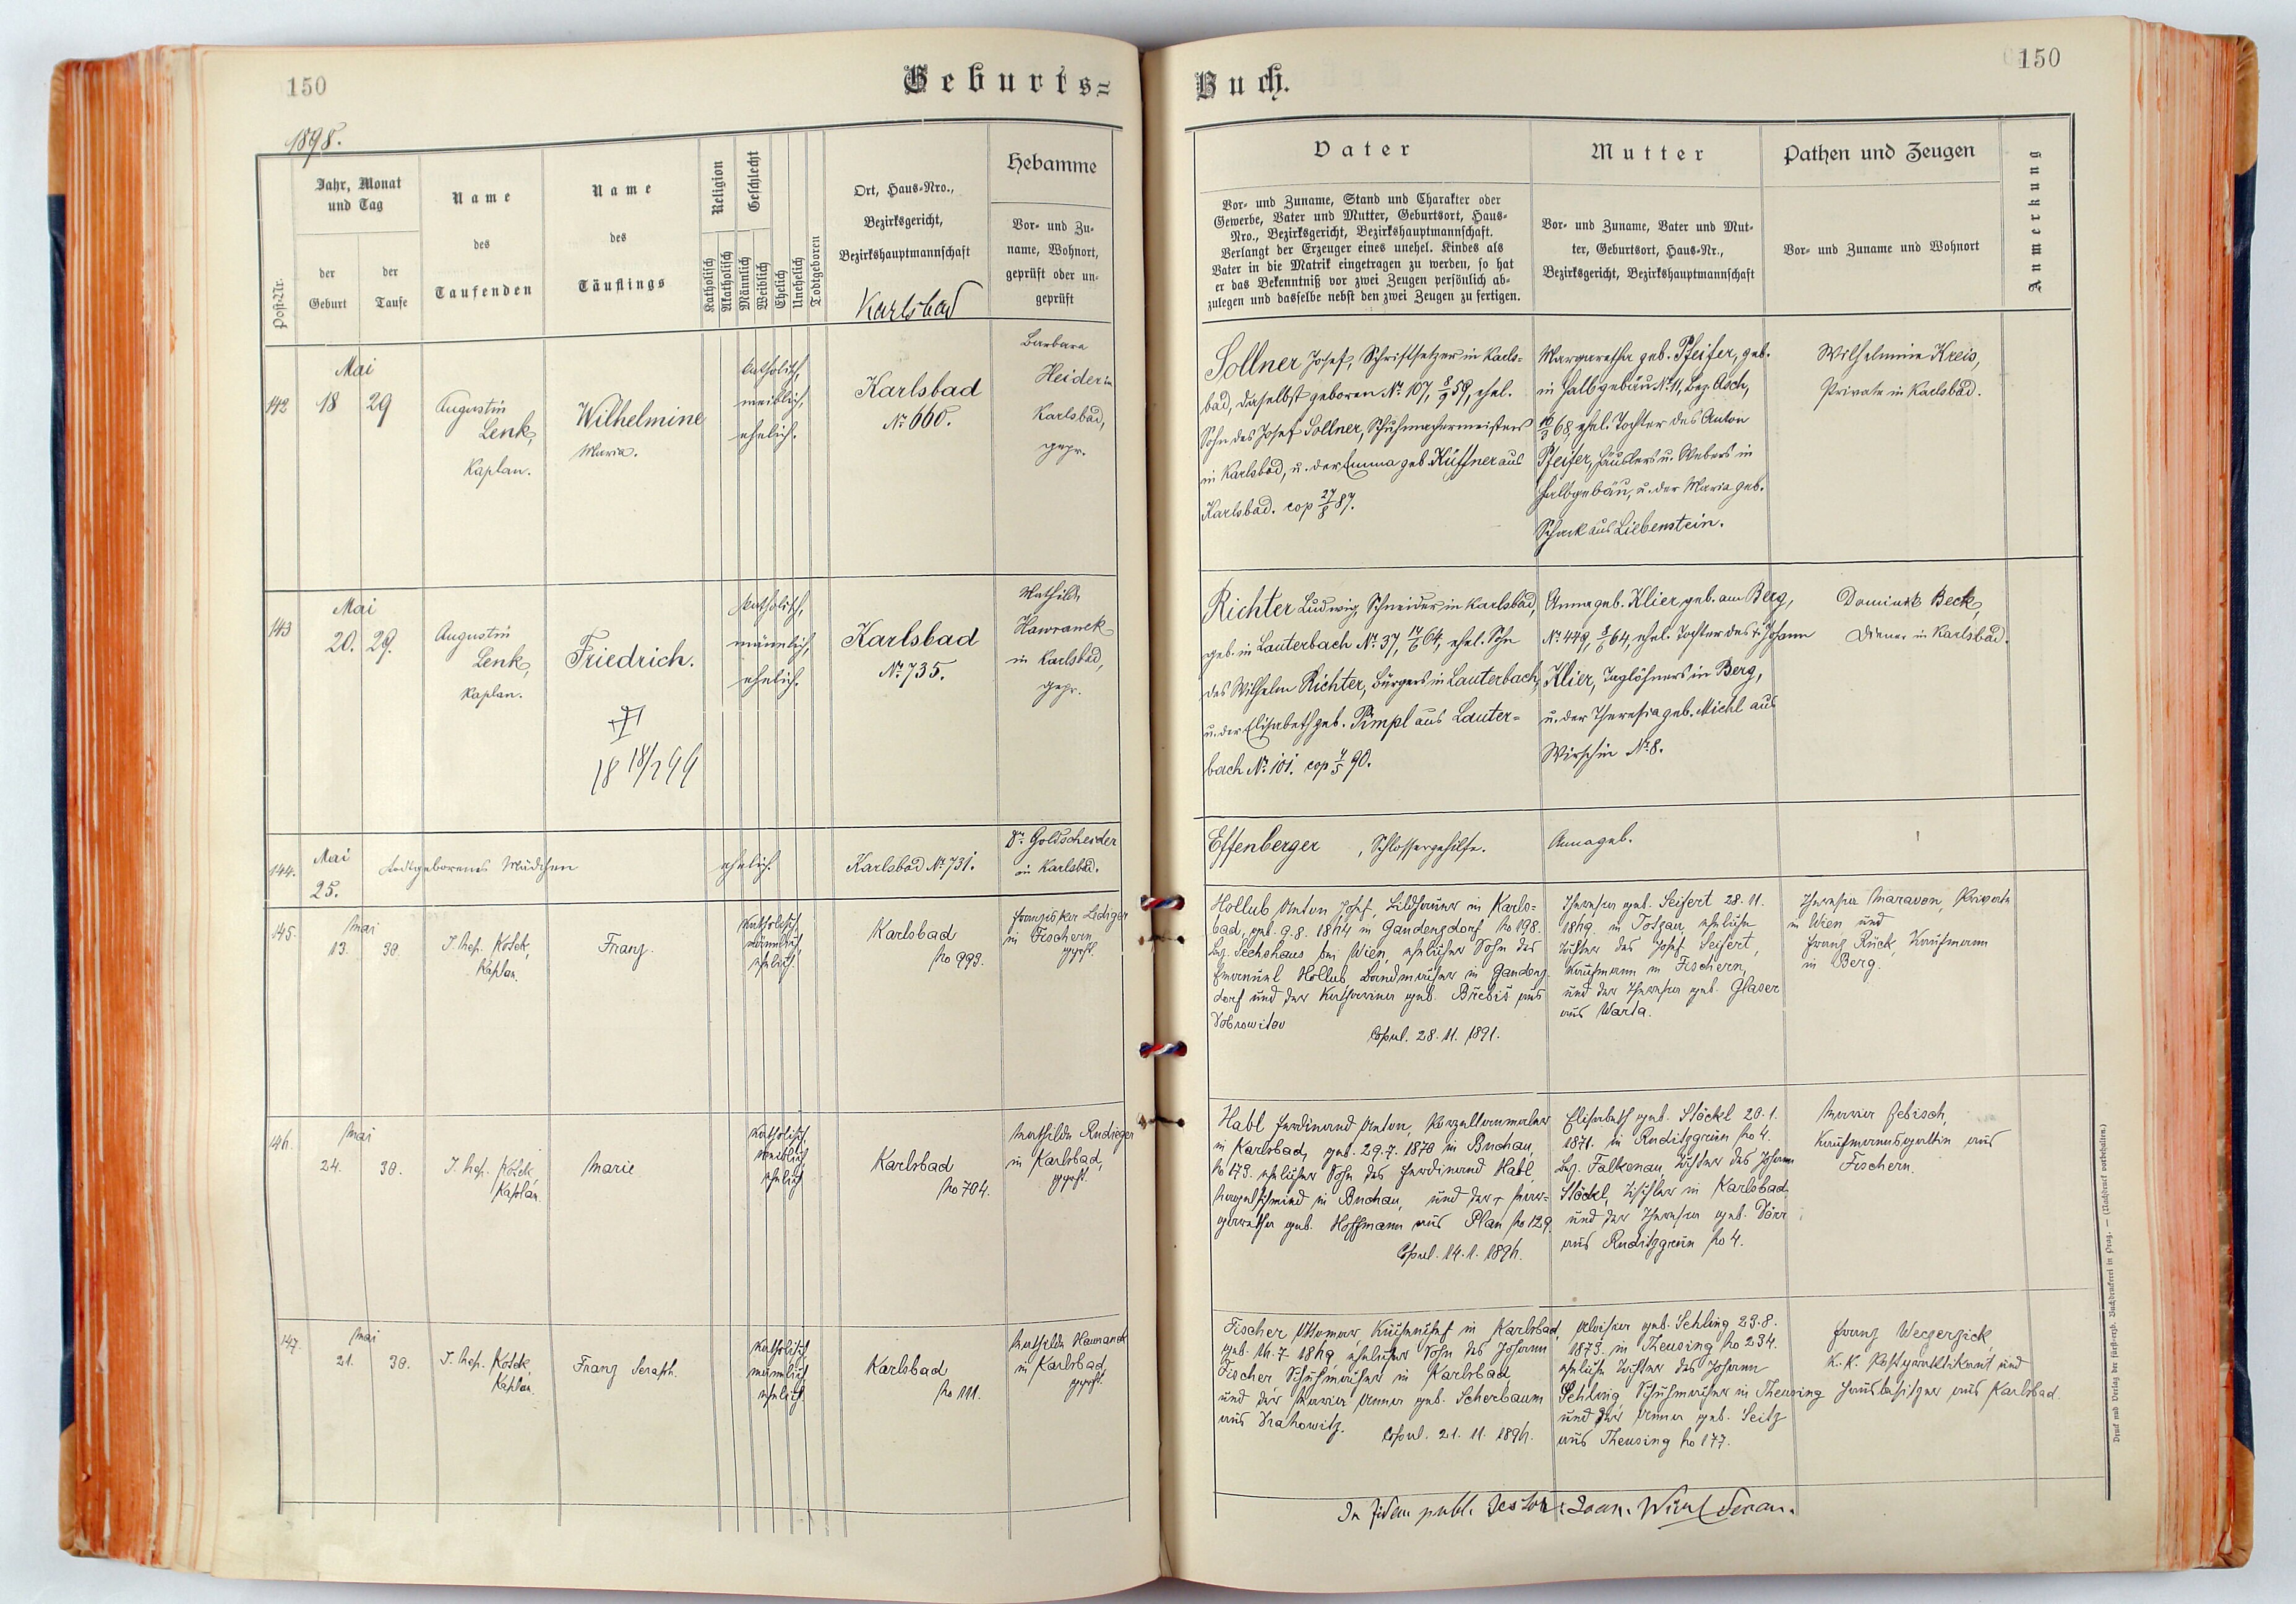 150
Geburts=
1898.
Post-Nr.
Jahr, Monat
und Tag
der
Geburt
der
Taufe
Name
des
Taufenden
Name
des
Täuflings
Religion
Katholisch
Akatholisch
Geschlecht
Männlich
Weiblich
Ehelich
Unehelich
Todtgeboren
Ort, Haus-Nro.,
Bezirksgericht,
Bezirkshauptmannschaft
Karlsbad
Hebamme
Vor- und Zu-
name, Wohnort,
geprüft oder un-
geprüft
142
Mai
18 29
Augustin
Lenk,
Kaplan.
Wilhelmine
Maria.
katholisch,
weiblich,
ehelich.
Karlsbad
No 660.
Barbara
Heider in
Karlsbad,
gepr.
143
Mai
20. 29.
Augustin
Lenk,
Kaplan.
Friedrich.
katholisch,
männlich,
ehelich.
Karlsbad
No 735.
Mathilde
Hawranek
in Karlsbad,
gepr.
144.
Mai
25.
todtgeborenes Mädchen
ehelich.
Karlsbad No 731.
Dr. Goldscheider
in Karlsbad.
145.
Mai
13. 30.
J. Nep. Košek,
Kaplan.
Franz.
katholisch,
männlich,
ehelich.
Karlsbad
No 993.
Franziska Lediger
in Fischern
geprft.
146.
Mai
24. 30.
J. Nep. Košek,
Kaplan.
Marie
katholisch,
weiblich,
ehelich.
Karlsbad
No 704.
Mathilde Rudieger
in Karlsbad,
geprft.
147.
Mai
21. 30.
J. Nep. Košek,
Kaplan.
Franz Seraph.
katholisch,
männlich,
ehelich.
Karlsbad
No 111.
Mathilde Hawranek
in Karlsbad,
geprft.
Buch.
150
Vater
Vor- und Zuname, Stand und Charakter oder
Gewerbe, Vater und Mutter, Geburtsort, Haus-
Nro., Bezirksgericht, Bezirkshauptmannschaft.
Verlangt der Erzeuger eines unehel. Kindes als
Vater in die Matrik eingetragen zu werden, so hat
er das Bekenntniß vor zwei Zeugen persönlich ab-
zulegen und dasselbe nebst den zwei Zeugen zu fertigen.
Mutter
Vor- und Zuname, Vater und Mut-
ter, Geburtsort, Haus-Nr.,
Bezirksgericht, Bezirkshauptmannschaft
Pathen und Zeugen
Vor- und Zuname und Wohnort
Anmerkung
Sollner Josef, Schriftsetzer in Karls-
bad, daselbst geboren No 107, 8/9 59, ehel.
Sohn des Josef Sollner, Schuhmachermeisters
in Karlsbad, u. der Emma geb. Küffner aus
Karlsbad. cop 27/8 87.
Margaretha geb. Pfeifer, geb.
in Halbgebäu No 11, Bez. Asch,
10/3 68, ehel. Tochter des Anton
Pfeifer, Häuslers u. Webers in
Halbgebäu, u. der Maria geb.
Schack aus Liebenstein.
Wilhelmine Kreis,
Private in Karlsbad.
Richter Ludwig, Schneider in Karlsbad,
geb. in Lauterbach No 37, 64, ehel. Sohn
des Wilhelm Richter, Bürgers in Lauterbach,
u. der Elisabeth geb. Pimpl aus Lauter=
bach No 101. cop 4/5 90.
Anna geb. Klier, geb. am Berg,
No 449, 64, ehel. Tochter des † Johann
Klier, Taglöhners in Berg,
u. der Theresia geb. Michl aus
Wirschin No 8.
Dominik Beck,
Diener in Karlsbad.
Effenberger , Schlossergehilfe.
Anna geb.
Hollub Anton Josef, Bildhauer in Karls=
bad, geb. 9. 8. 1864 in Gaudenzdorf No 198.
Bez. Sechshaus bei Wien, ehelicher Sohn des
Emanuel Hollub Bandmacher in Gaudenz-
dorf und der Katharina geb. Břebiš aus
Dobrowitov
Copul. 28. 11. 1891.
Theresia geb. Seifert 28. 11.
1869. in Totzau, eheliche
Tochter des Josef Seifert,
Kaufmann in Fischern,
und der Theresia geb. Glaser
aus Warta.
Theresia Maravon, Private
in Wien und
Franz Rück, Kaufmann
in Berg.
Habl Ferdinand Anton, Porzellanmaler
in Karlsbad, geb. 29. 7. 1870 in Buchau,
No 173. ehelicher Sohn des Ferdinand Habl,
Nagelschmied in Buchau, und der † Mar=
garetha geb. Hoffmann aus Plan No 129.
Copul. 14. 1. 1896.
Elisabeth geb. Stöckel 20. 1.
1871. in Ruditzgrün No 4.
Bez. Falkenau, Tochter des Johann
Stöckel, Tischler in Karlsbad
und der Theresia geb. Dörr
aus Ruditzgrün No 4.
Maria Zebisch,
Kaufmannsgattin aus
Fischern.
Fischer Ottomar, Küchenchef in Karlsbad,
geb. 16. 7. 1869 ehelicher Sohn des Johann
Fischer Schuhmacher in Karlsbad
und der Maria Anna geb. Scherbaum
aus Drahowitz.
Copul. 21. 11. 1896.
Aloisia geb. Sehling 23. 8.
1873. in Theusing No 234.
eheliche Tochter des Johann
Sehling, Schuhmacher in Theusing
und der Anna geb. Seitz
aus Theusing No 177.
Franz
K. K. Postpraktikant und
Hausbesitzer aus Karlsbad.
In fidem publ.
Druck und Verlag der fürsterzb. Buchdruckerei in Prag. — (Nachdruck vorbehalten.)